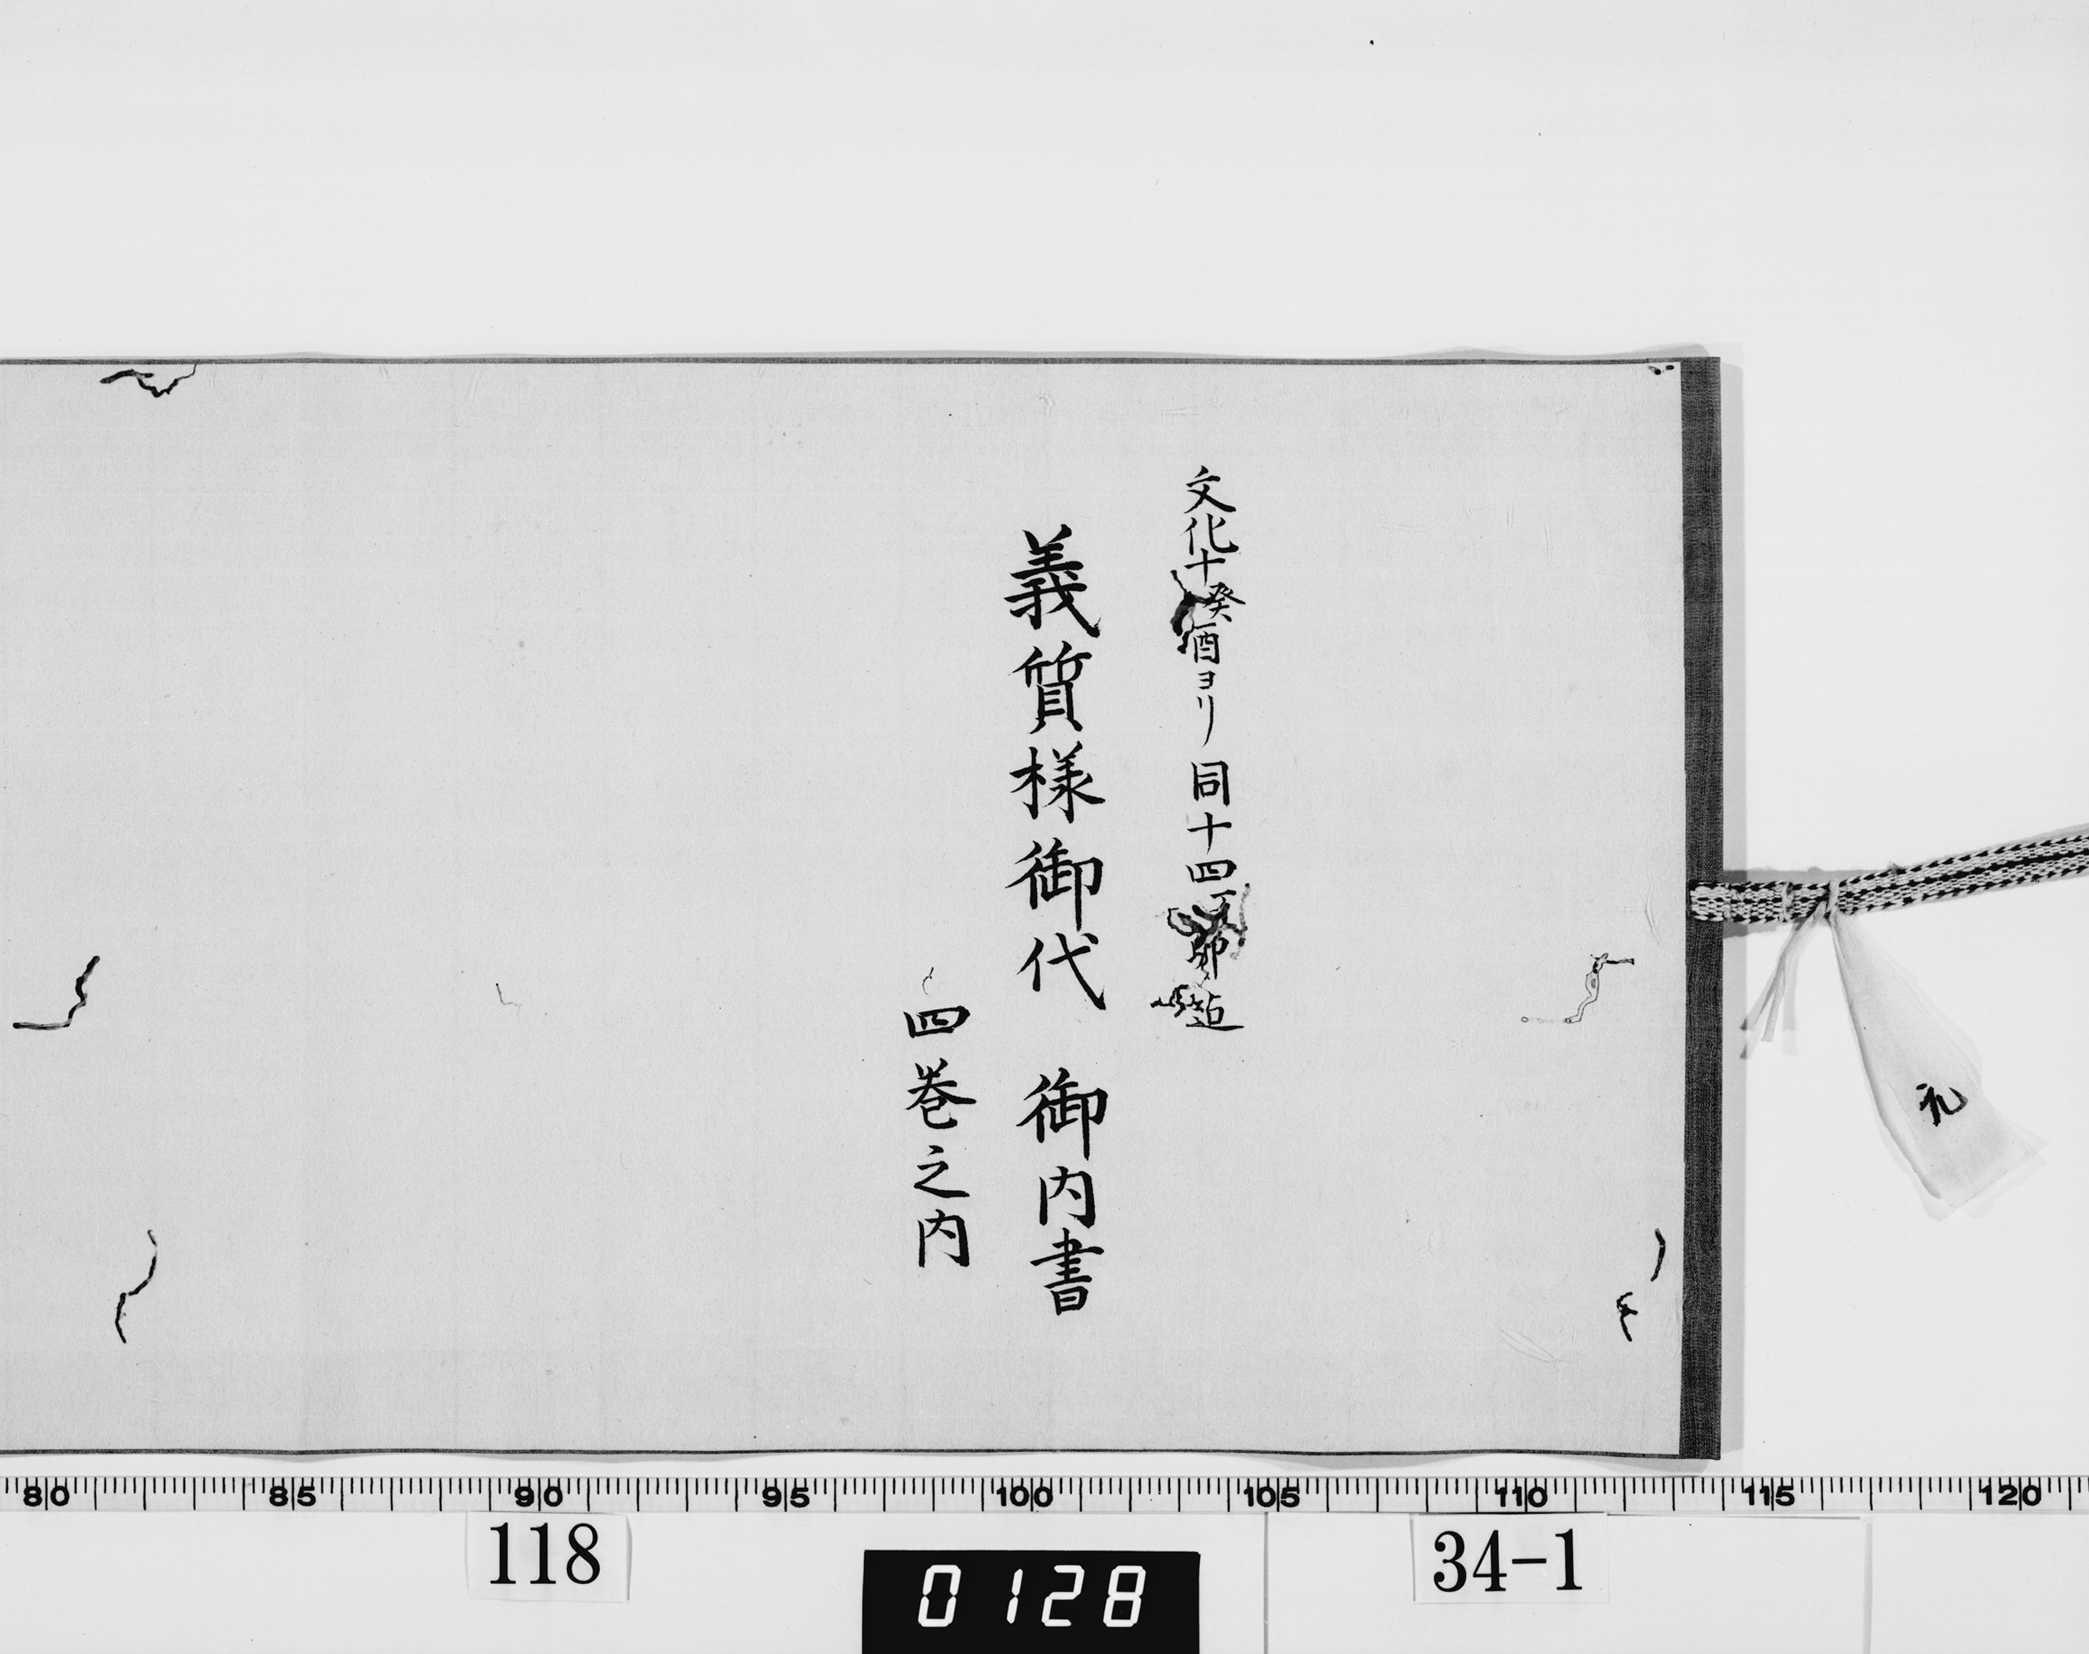 文化十癸酉ヨリ 同十四丁卯迠
義質様御代 御内書
四巻之内
元
80 85 90 95 100 105 110 115 120
118
0128
34-1